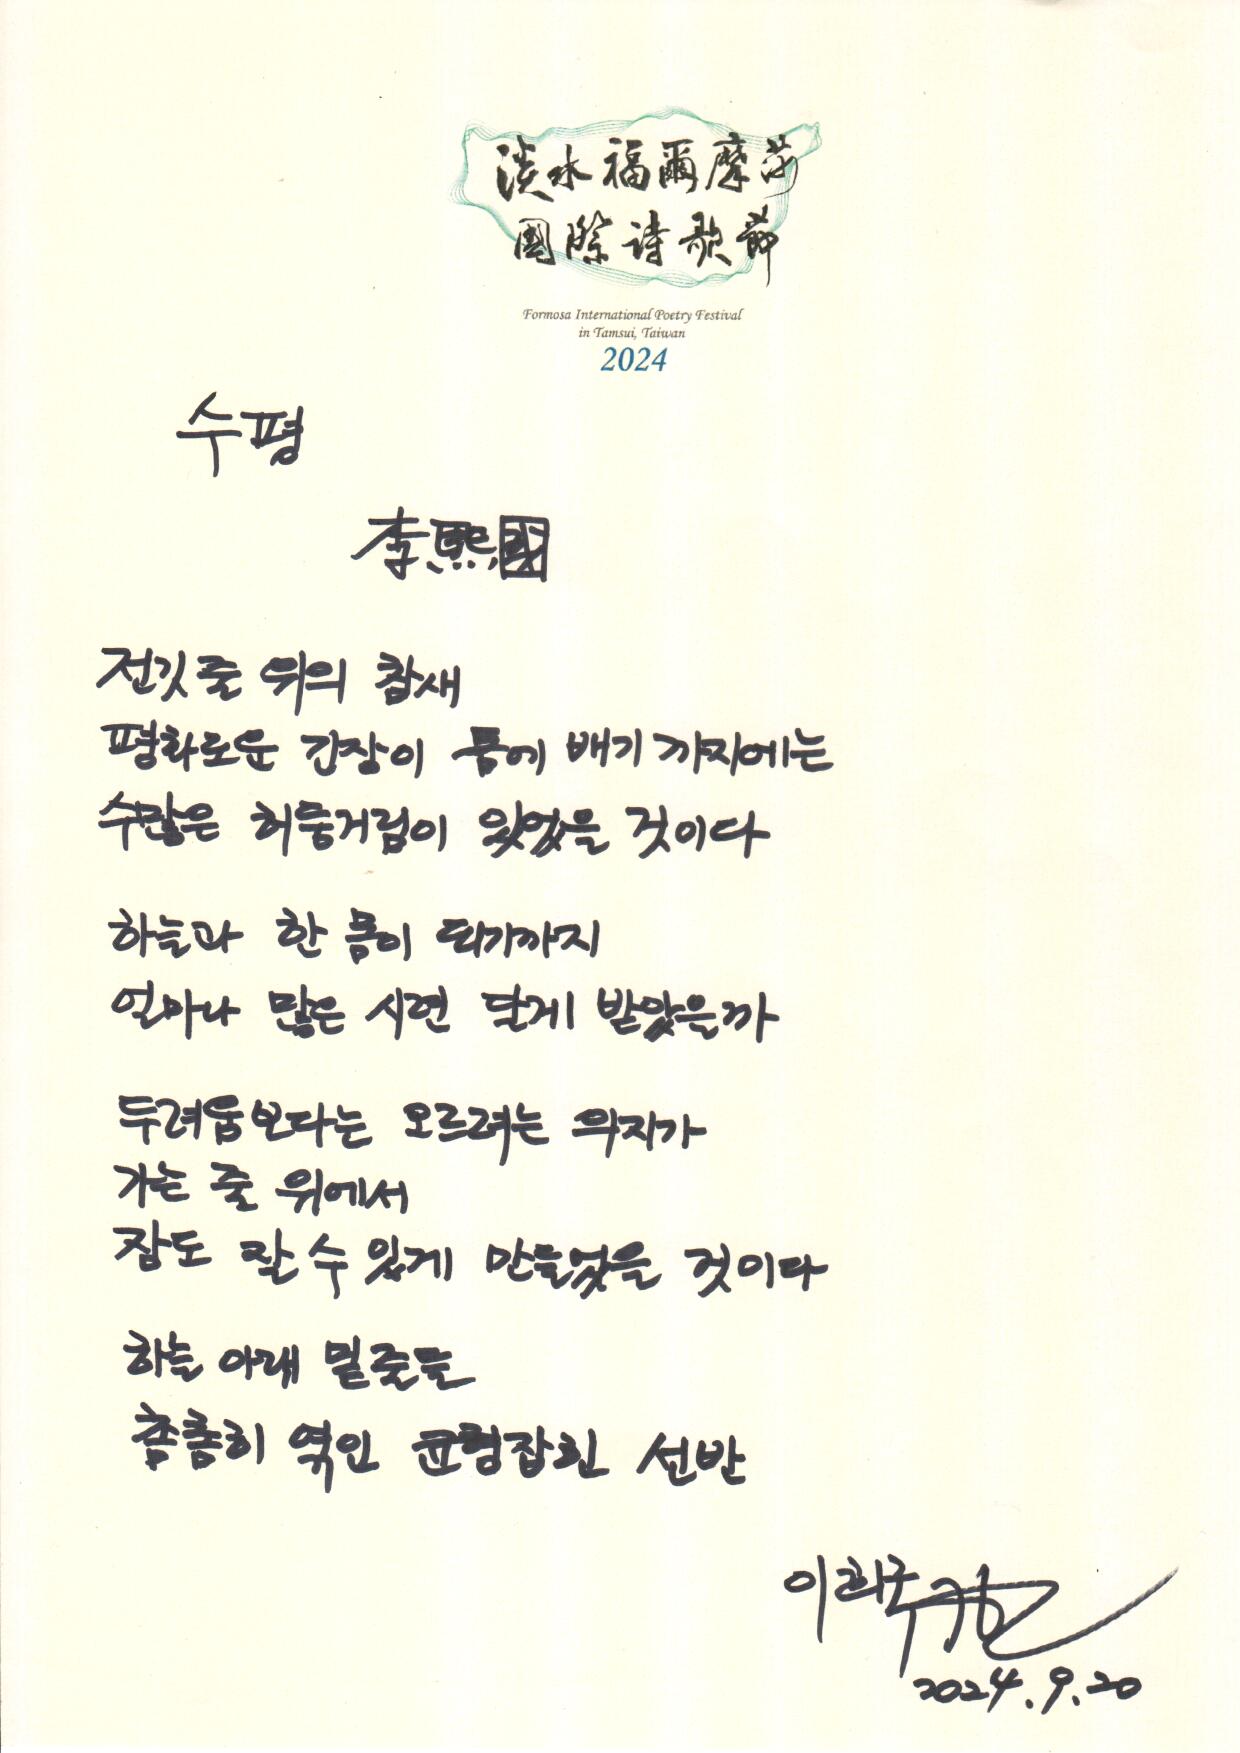 淡水福爾摩莎
國際詩歌節
Formosa International Poetry Festival
in Tamsui, Taiwan
2024
수평
李熙國
전깃줄 위의 참새
평화로운 긴장이 몸에 배기 까지에는
수많은 허둥거림이 있었을 것이다
하늘과 한 몸이 되기까지
얼마나 많은 시련 달게 받았을까
두려움보다는 오르려는 의지가
가는 줄 위에서
잠도 잘 수 있게 만들었을 것이다
하늘 아래 밑줄들
촘촘히 엮인 균형잡힌 선반
이희국
2024.9.20